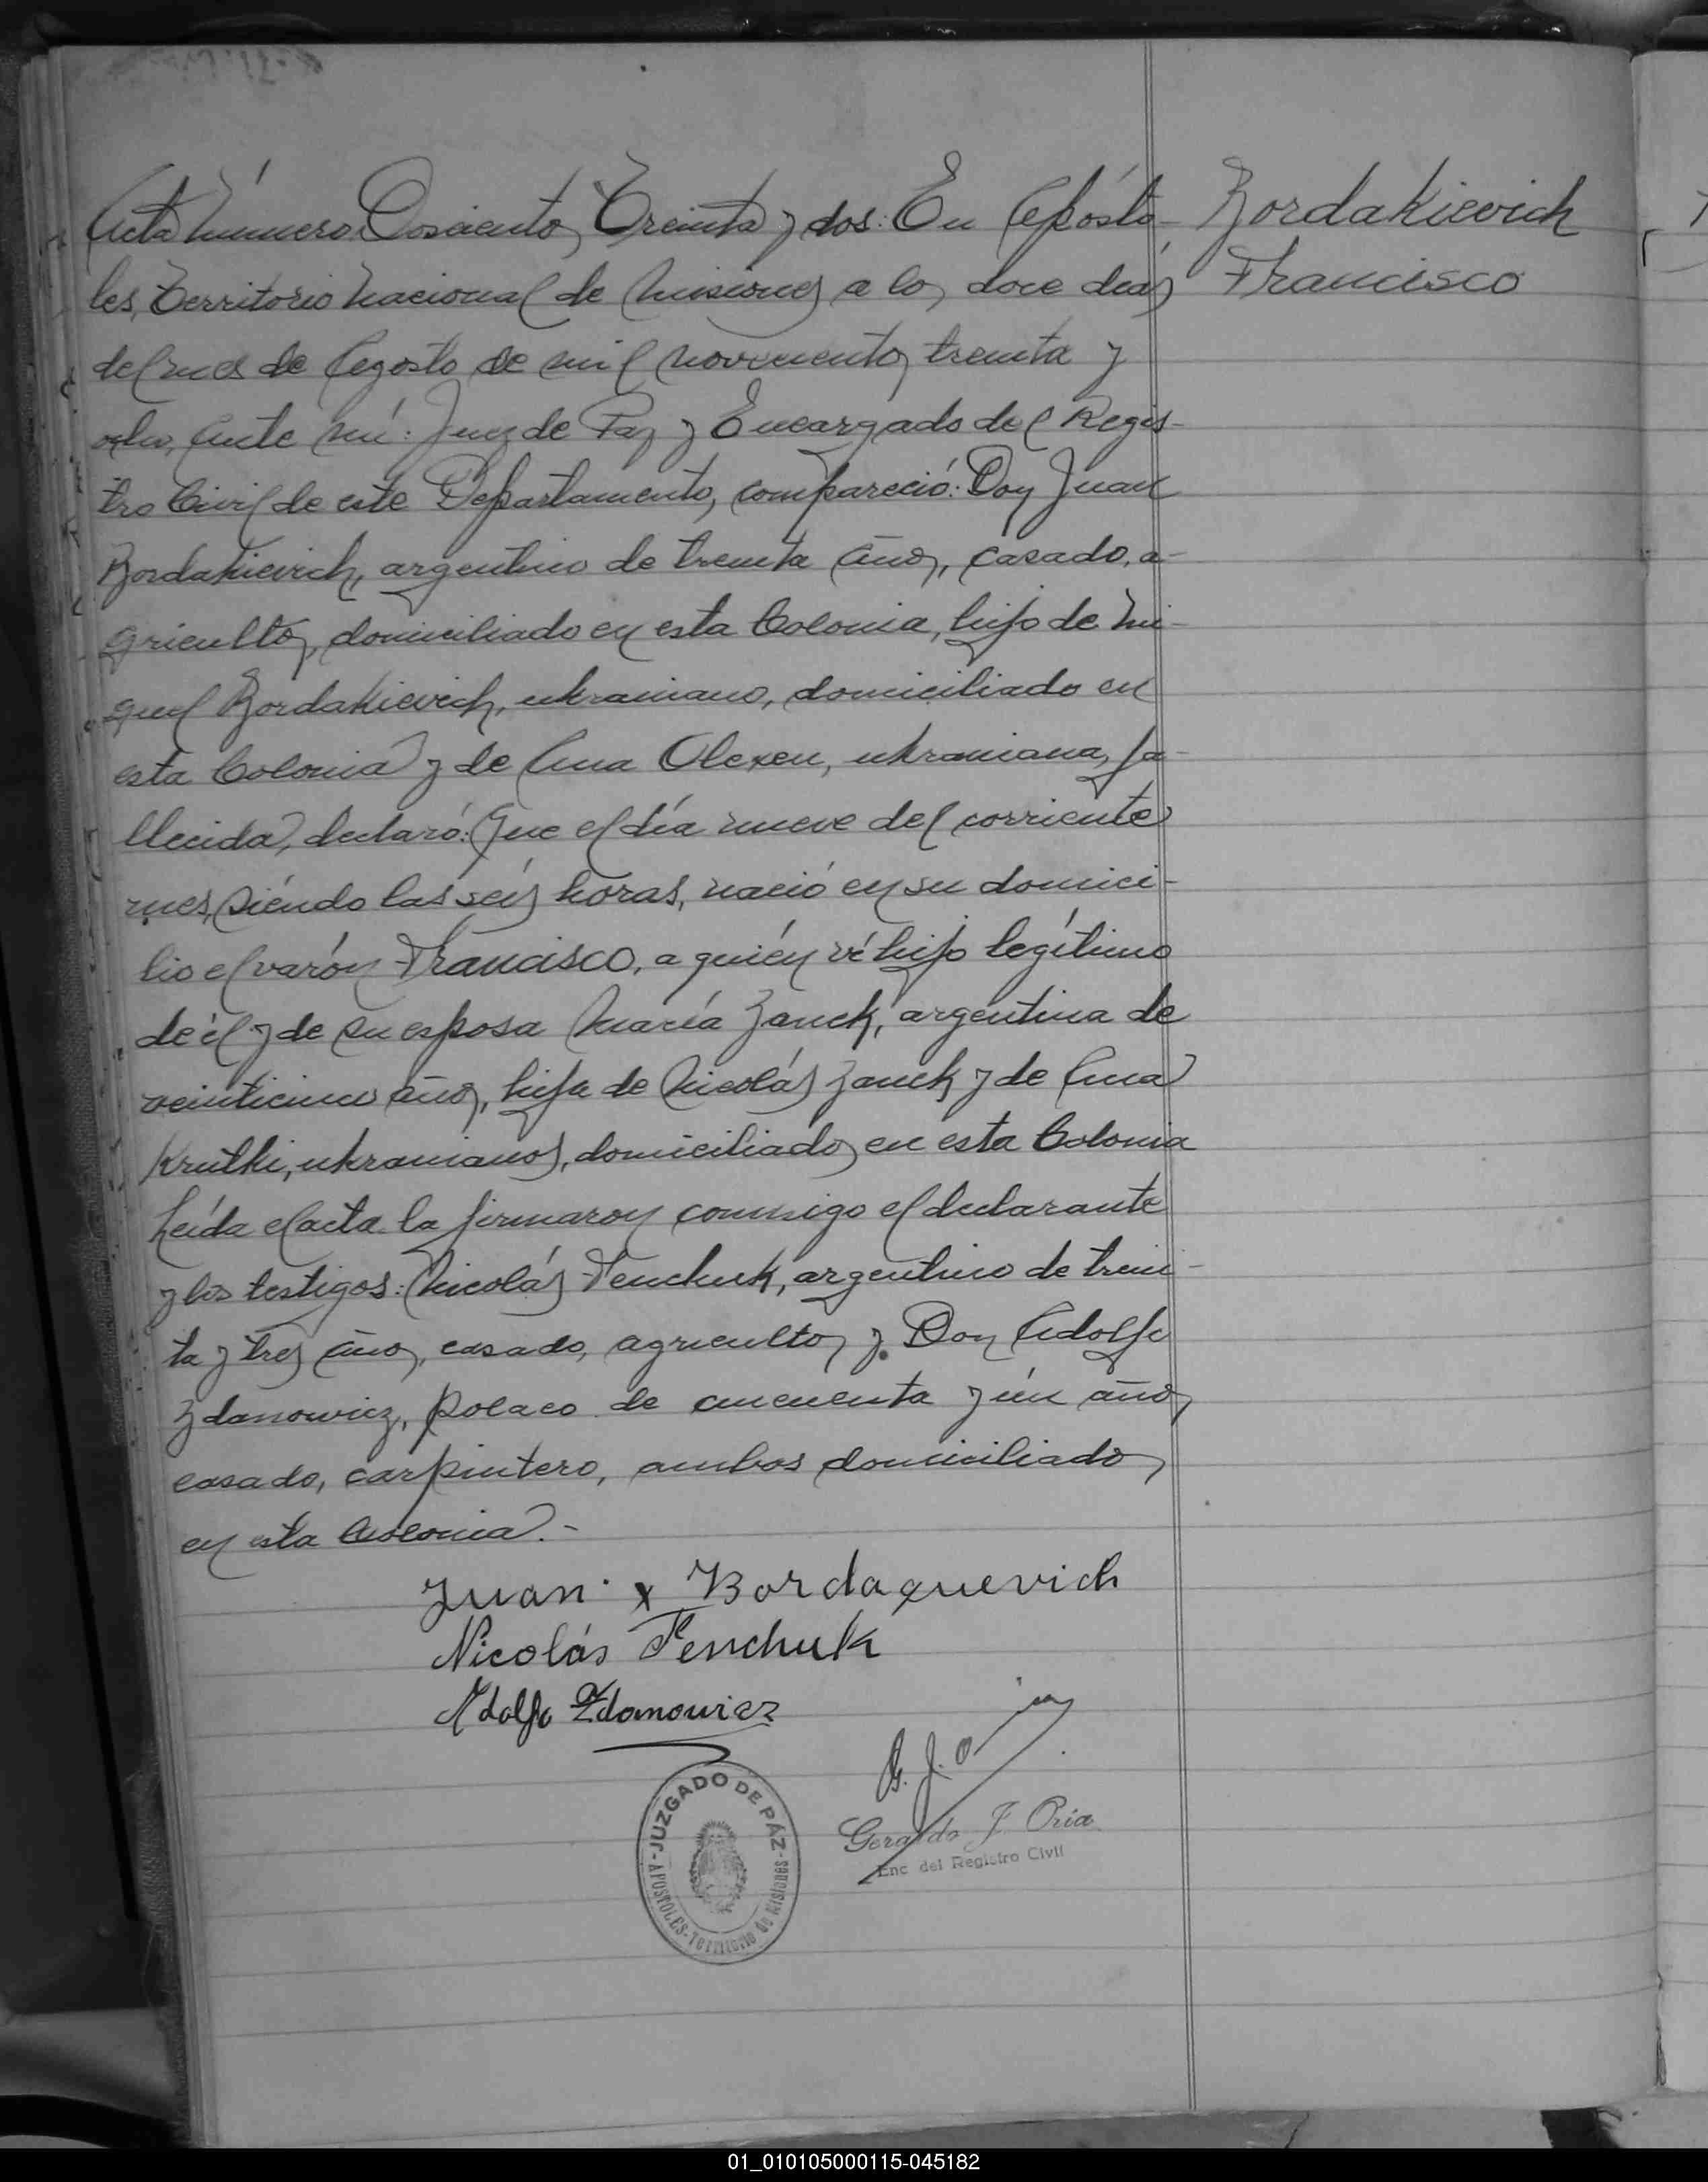 Acta Número Doscientos Treinta y dos: En Apósto-
les, Territorio Nacional de Misiones a los doce días
del mes de Agosto de mil novecientos treinta y
ocho, Ante mí: Juez de Paz y Encargado del Regis-
tro Civil de este Departamento, compareció: Don Juan
Bordakievich, argentino de treinta años, casado, a-
gricultor, domiciliado en esta Colonia, hijo de Mi-
guel Bordakievich, ukraniano, domiciliado en
esta Colonia y de Ana Olexen, ukraniana, fa-
llecida, declaró: Que el día nueve del corriente
mes, siéndo las seis horas, nació en su domici-
lio el varón Francisco, a quién ví hijo legítimo
de él y de su esposa María Zanck, argentina de
veinticinco años, hija de Nicolás Zanck y de Ana
Krutki, ukranianos, domiciliados en esta Colonia
Leída el acta la firmaron conmigo el declarante
y los testigos: Nicolás Fenchuk, argentino de trein-
ta y tres años, casado, agricultor y Don Adolfo
Zdanowicz, polaco de cincuenta y ún años
casado, carpintero, ambos domiciliados
en esta Colonia.-
Bordakievich
Francisco
Juan x Bordaquevich
Nicolás Fenchuk
Adolfo Zdanowicz
G. J. O
Gerardo J. Oria
Enc del Registro Civil
JUZGADO DE PAZ
APOSTOLES - Territorio de Misiones
01_010105000115-045182